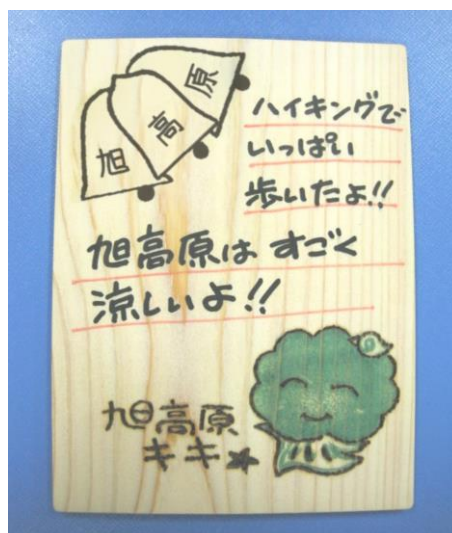 旭
高
原
ハイキングで
いっぱい
歩いたよ!!
旭高原は すごく
涼しいよ!!
旭高原
キキ★